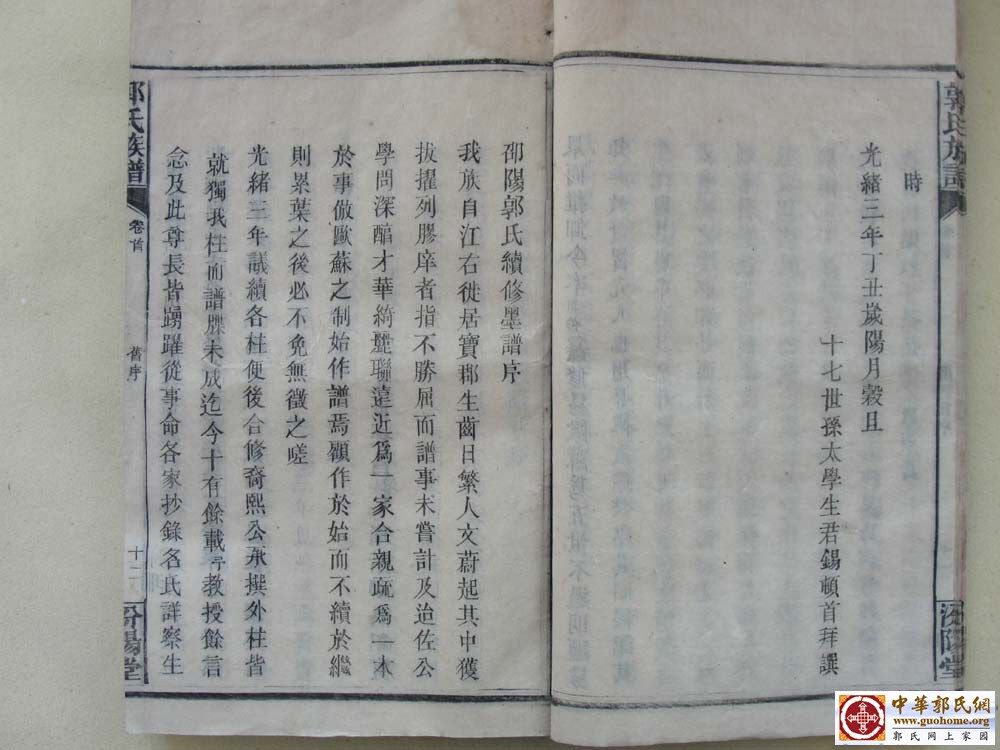 郭氏族譜
汾陽堂
時
光緒三年丁丑歲陽月穀旦
十七世孫太學生君錫頓首拜譔
邵陽郭氏續修墨譜序
我族自江右徙居寶郡生齒日繁人文蔚起其中獲
拔擢列膠庠者指不勝屈而譜事未嘗計及迨佐公
學問深醕才華綺麗聯遠近爲一家合親疏爲一本
於事倣歐蘇之制始作譜焉顧作於始而不續於繼
則累葉之後必不免無徵之嗟
光緒三年議續各柱便後合修裔熙公承撰外柱皆
就獨我柱而譜牒未成迄今十有餘載予教授餘言
念及此尊長皆踴躍從事命各家抄錄名氏詳察生
郭氏族譜
卷首
舊序
十二
汾陽堂
中華郭氏網
www.guohome.org
郭氏網上家園